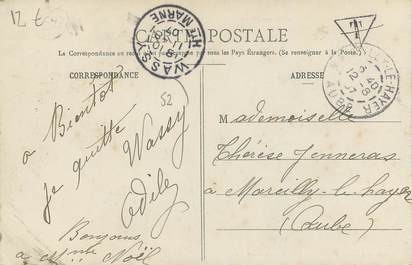 12 €
CARTE POSTALE
La Correspondance au recto n'est pas acceptée par tous les Pays Étrangers. (Se renseigner à la Poste.)
CORRESPONDANCE
WASSY
Hte MARNE
MARCILLY-LE-HAYER
AUBE
52
à Bientôt
Je quitte Wassy
Odile
Bonjours
à Mme Noël
Mademoiselle
Thérèse Jenneras
à Marcilly-le-hayer
(Aube)